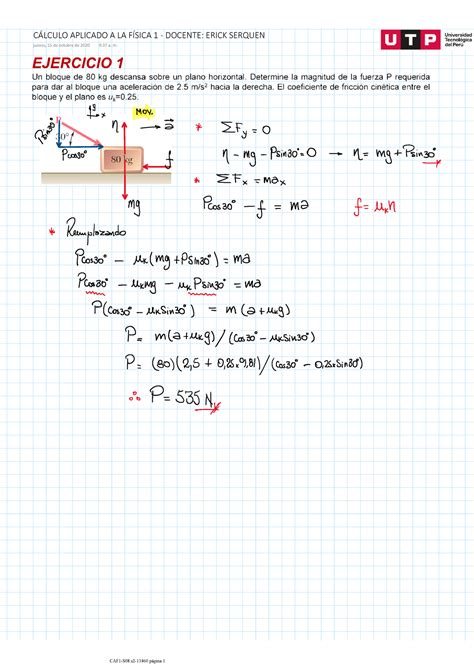 CÁLCULO APLICADO A LA FÍSICA 1 - DOCENTE: ERICK SERQUEN
UTP Universidad Tecnológica del Perú
EJERCICIO 1
Un bloque de 80 kg descansa sobre un plano horizontal. Determine la magnitud de la fuerza P requerida
para dar al bloque una aceleración de 2.5 m/s² hacia la derecha. El coeficiente de fricción cinética entre el
bloque y el plano es uₖ=0.25.
y x MOV.
P Psin30° 30° n a * ΣFy = 0
Pcos30° 80 kg f n - mg - Psin30° = 0 → n = mg + Psin30°
* ΣFx = max
mg Pcos30° - f = ma f = μₖn
* Remplazando
Pcos30° - μₖ(mg + Psin30°) = ma
Pcos30° - μₖmg - μₖPsin30° = ma
P(cos30° - μₖsin30°) = m(a + μₖg)
P = m(a + μₖg)/(cos30° - μₖsin30°)
P = (80)(2,5 + 0,25x9,81)/(cos30° - 0,25xsin30°)
∴ P = 535 N